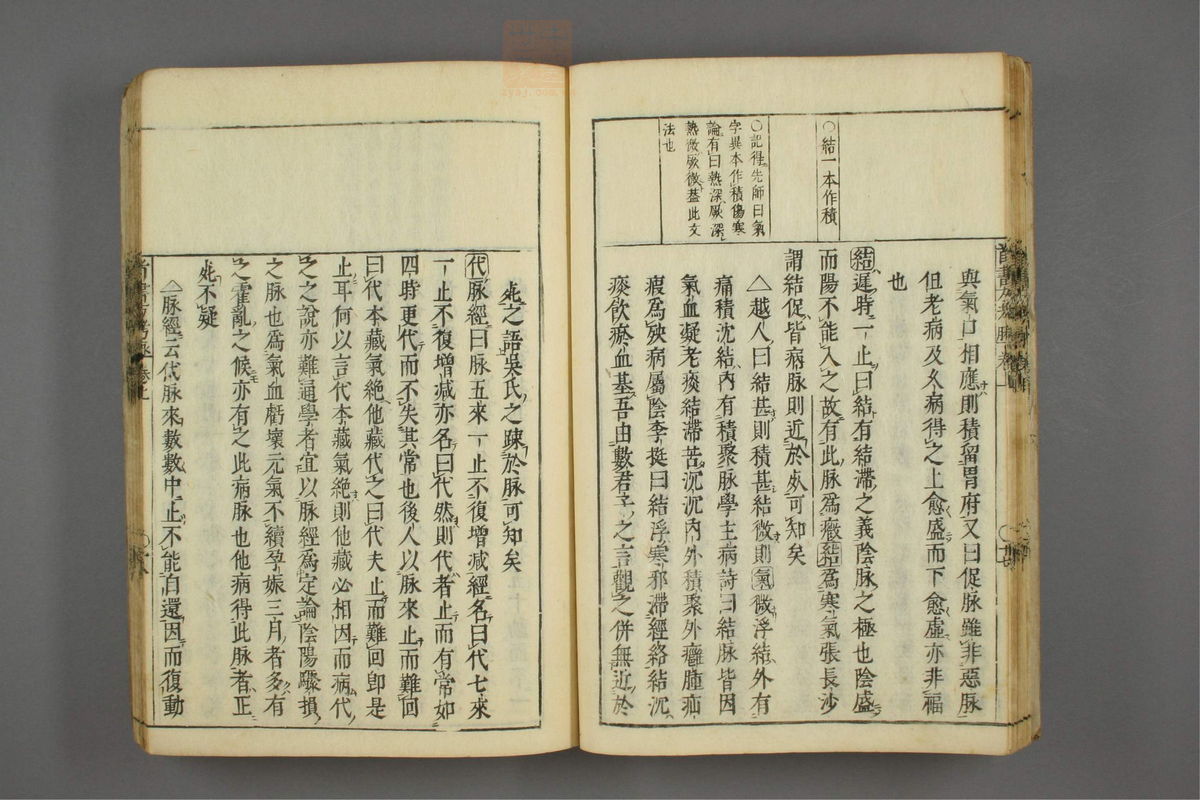 〇結一本作積
〇記得先師曰氣
字異本作積傷寒
論有曰熱深厥深
熱微厥微蓋此文
法也
與氣口相應則積留胃府又曰促脉雖非惡脉
但老病及久病得之上愈盛而下愈虛亦非福
也
結遲時一止曰結有結滯之義陰脉之極也陰盛
而陽不能入之故有此脉爲癥結爲寒氣張長沙
謂結促皆病脉則近於死可知矣
△越人曰結甚則積甚結微則氣微浮結外有
痛積沈結內有積聚脉學主病詩曰結脉皆因
氣血凝老痰結滯苦沉沉內外積聚外癰腫疝
瘕爲殃病屬陰李挺曰結浮寒邪滯經絡結沉
痰飲瘀血基吾由數君子之言觀之併無近於
死之語吳氏之疎於脉可知矣
代脉經曰脉五來一止不復增減經名曰代七來
一止不復增減亦名曰代然則代者止而有常如
四時更代而不失其常也後人以脉來止而難回
曰代本藏氣絕他藏代之曰代夫止而難回卽是
止耳何以言代本藏氣絕則他藏必相因而病代
之之說亦難通學者宜以脉經爲定論陰陽驟損
之脉也爲氣血虧壞元氣不續孕娠三月者多有
之霍亂之候亦有之此病脉也他病得此脉者正
死不疑
△脉經云代脉來數數中止不能自還因而復動